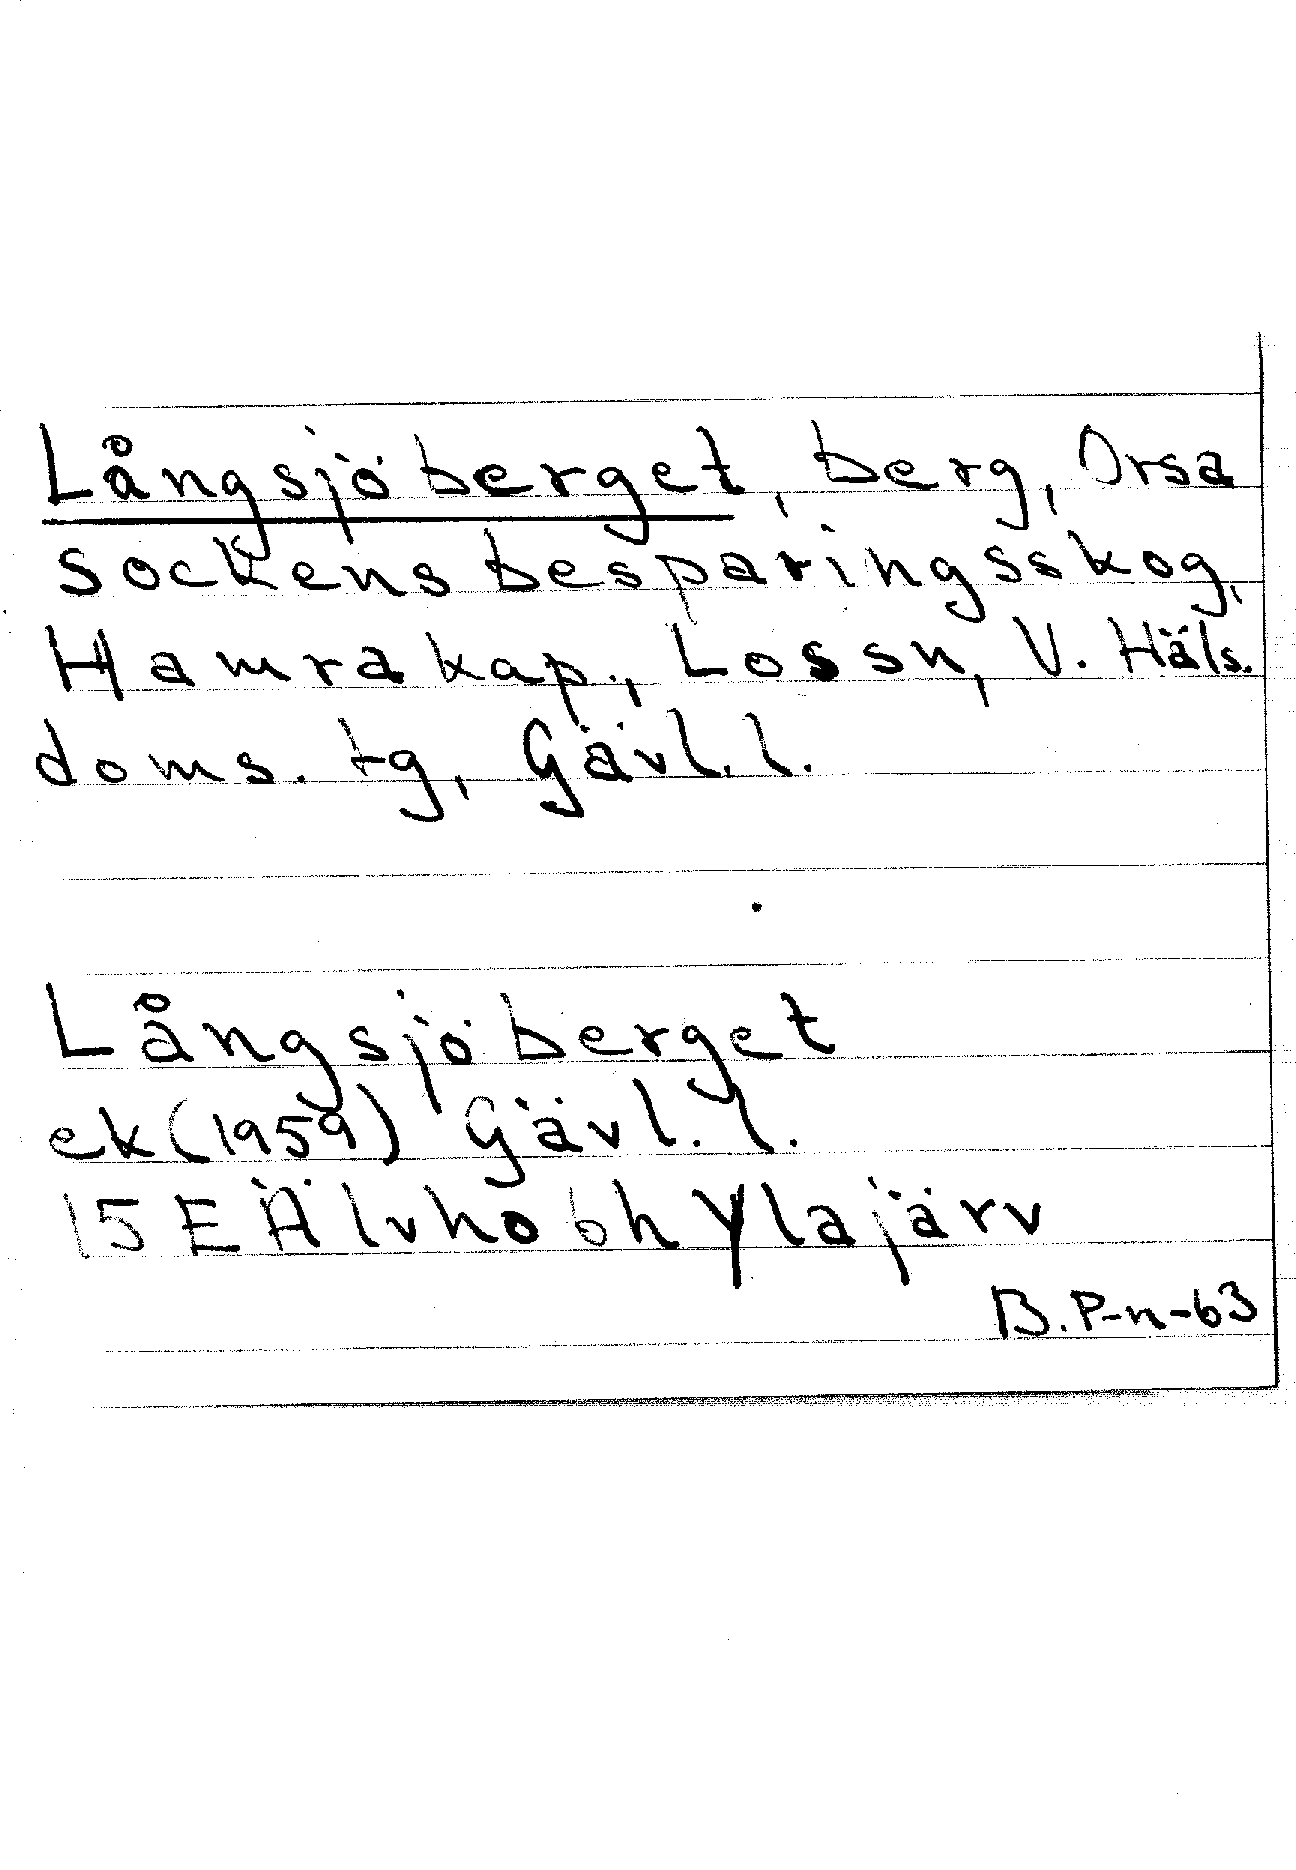 Långsjöberget, berg, Orsa
sockens besparingsskog,
Hamra kap., Lossn, V. Häls.
doms. tg, Gävl. l.
Långsjöberget
ek (1959) Gävl. l.
15 E Älvho 6h Ylajärv
B. P-n-63